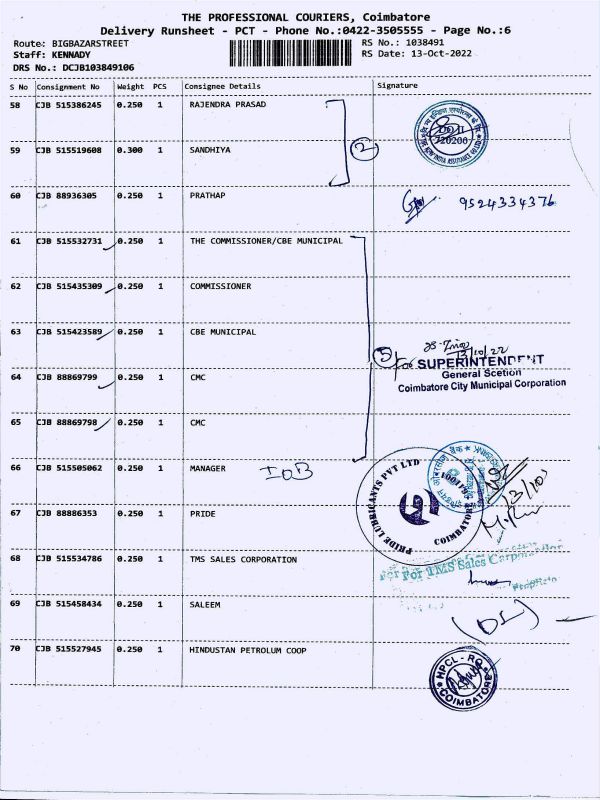 THE PROFESSIONAL COURIERS, Coimbatore
Delivery Runsheet - PCT - Phone No.:0422-3505555 - Page No.:6
Route: BIGBAZARSTREET RS No.: 1038491
Staff: KENNADY RS Date: 13-Oct-2022
DRS No.: DCJB103849106
S No Consignment No Weight PCS Consignee Details Signature
58 CJB 515386245 0.250 1 RAJENDRA PRASAD
720200
2
59 CJB 515519608 0.300 1 SANDHIYA
60 CJB 88936305 0.250 1 PRATHAP 9524334376
61 CJB 515532731 0.250 1 THE COMMISSIONER/CBE MUNICIPAL
62 CJB 515435309 0.250 1 COMMISSIONER
63 CJB 515423589 0.250 1 CBE MUNICIPAL
13/10/22
5 for SUPERINTENDENT
General Scetion
Coimbatore City Municipal Corporation
64 CJB 88869799 0.250 1 CMC
65 CJB 88869798 0.250 1 CMC
66 CJB 515505062 0.250 1 MANAGER IOB
PRIDE LUBRICANTS PVT LTD
COIMBATORE
67 CJB 88886353 0.250 1 PRIDE
68 CJB 515534786 0.250 1 TMS SALES CORPORATION
For TMS Sales Corporation
69 CJB 515458434 0.250 1 SALEEM
70 CJB 515527945 0.250 1 HINDUSTAN PETROLUM COOP
HPCL - RO
COIMBATORE